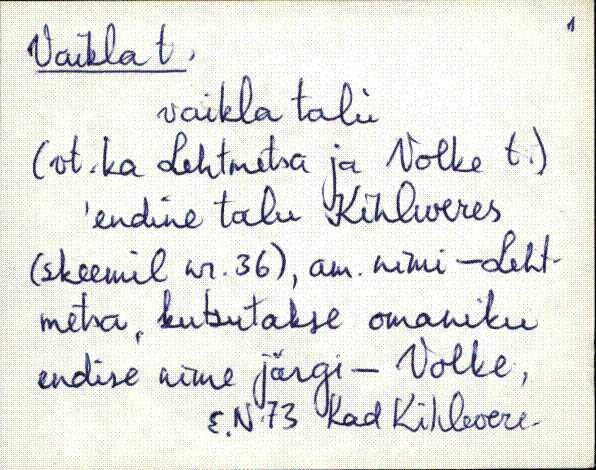 1
Vaikla t.
vaikla talu
(vt. ka Lehtmetsa ja Volke t.)
'endine talu Kihlweres
(skeemil nr. 36), am. nimi – Leht-
metsa, kutsutakse omaniku
endise nime järgi – Volke,
E.N 73 Kad Kihlevere